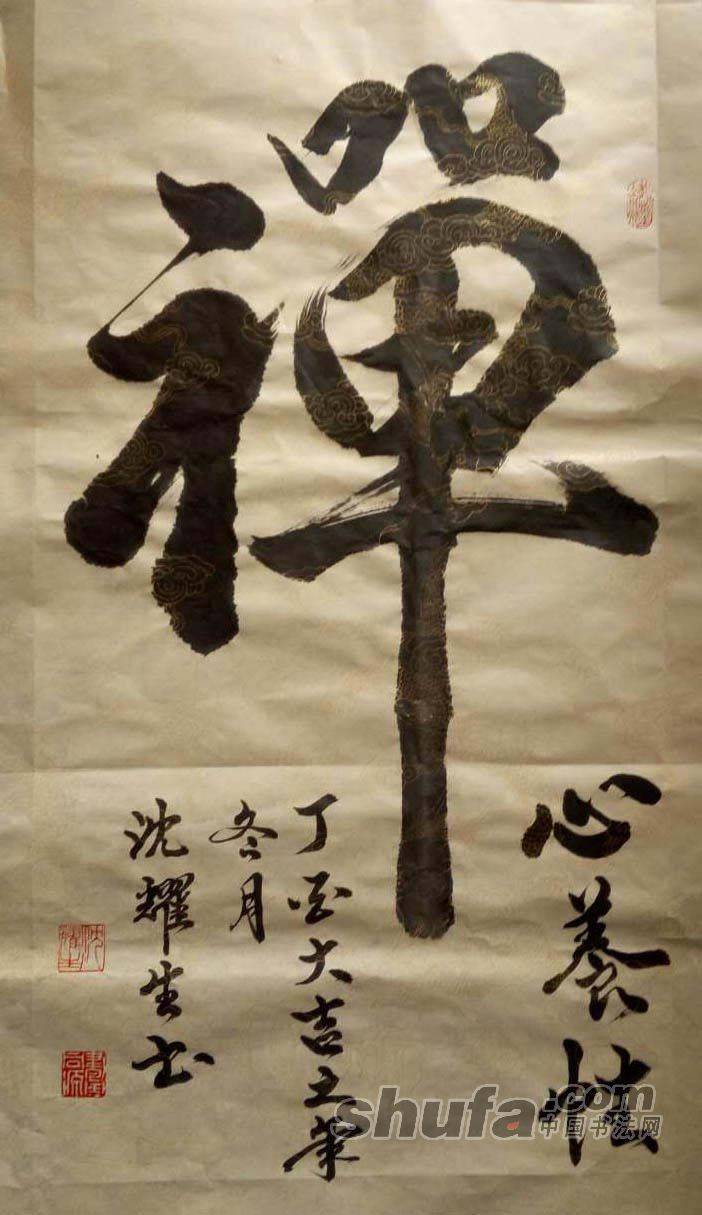 禪
心養性
丁酉大吉之年
冬月
沈耀生书
shufa.com
中国书法网